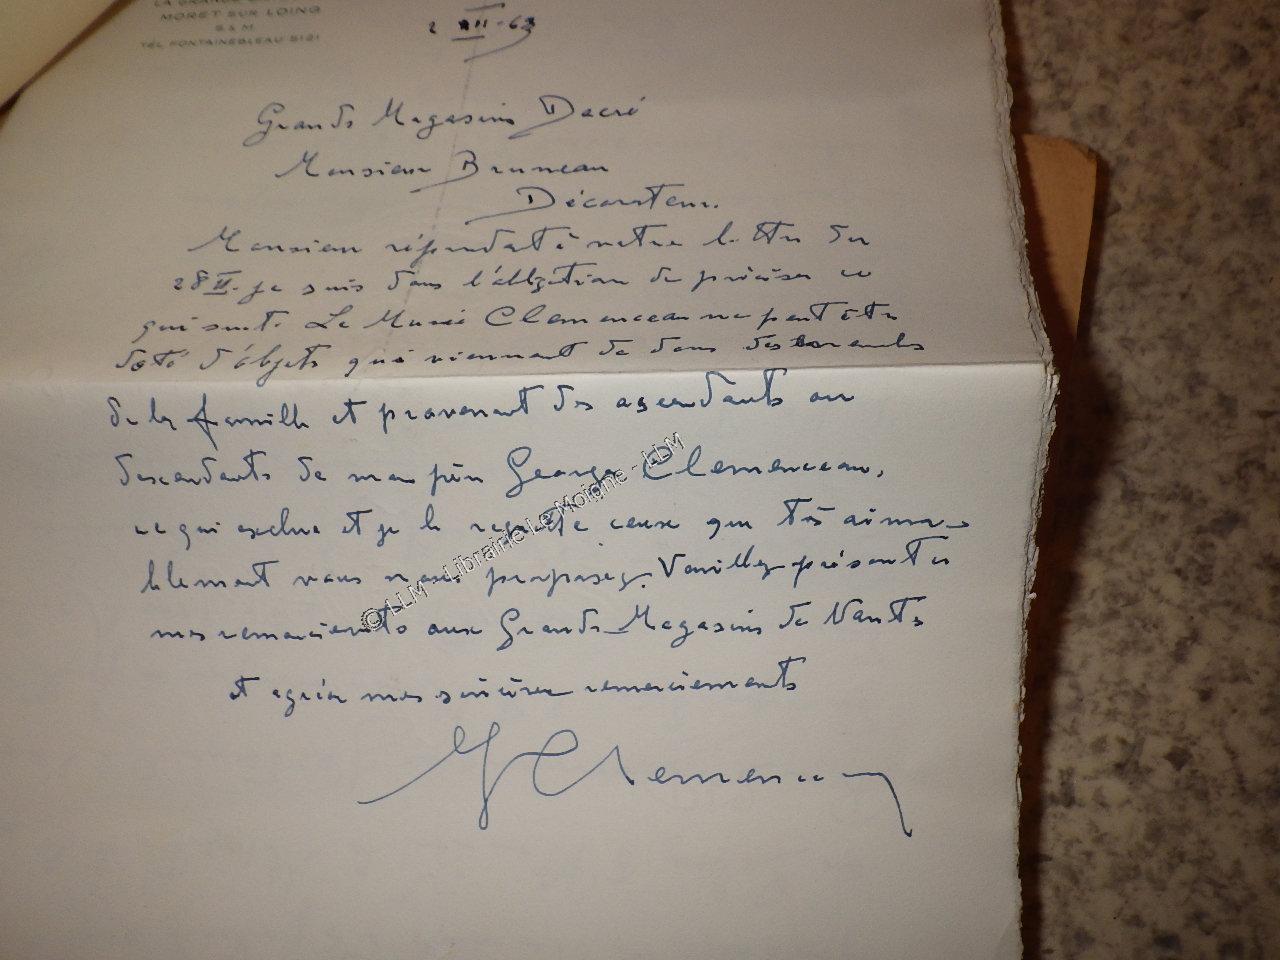 LA GRANDE
MORET SUR LOING
S & M.
TÉL. FONTAINEBLEAU 5121
2 III - 63
Grands Magasins Decré
Monsieur Bruneau
Décorateur.
Monsieur répondant à votre lettre du
28 II. je suis dans l'obligation de préciser ce
qui suit. Le Musée Clemenceau ne peut être
doté d'objets qui viennent de dons
de la famille et provenant des ascendants ou
descendants de mon père Georges Clemenceau,
ce qui exclue et je le regrette ceux que très aima-
blement vous nous proposez. Veuillez présenter
mes remerciements aux Grands-Magasins de Nantes
et agréer mes sincères remerciements
Clemenceau
© LLM - Librairie Le Moigne - LLM